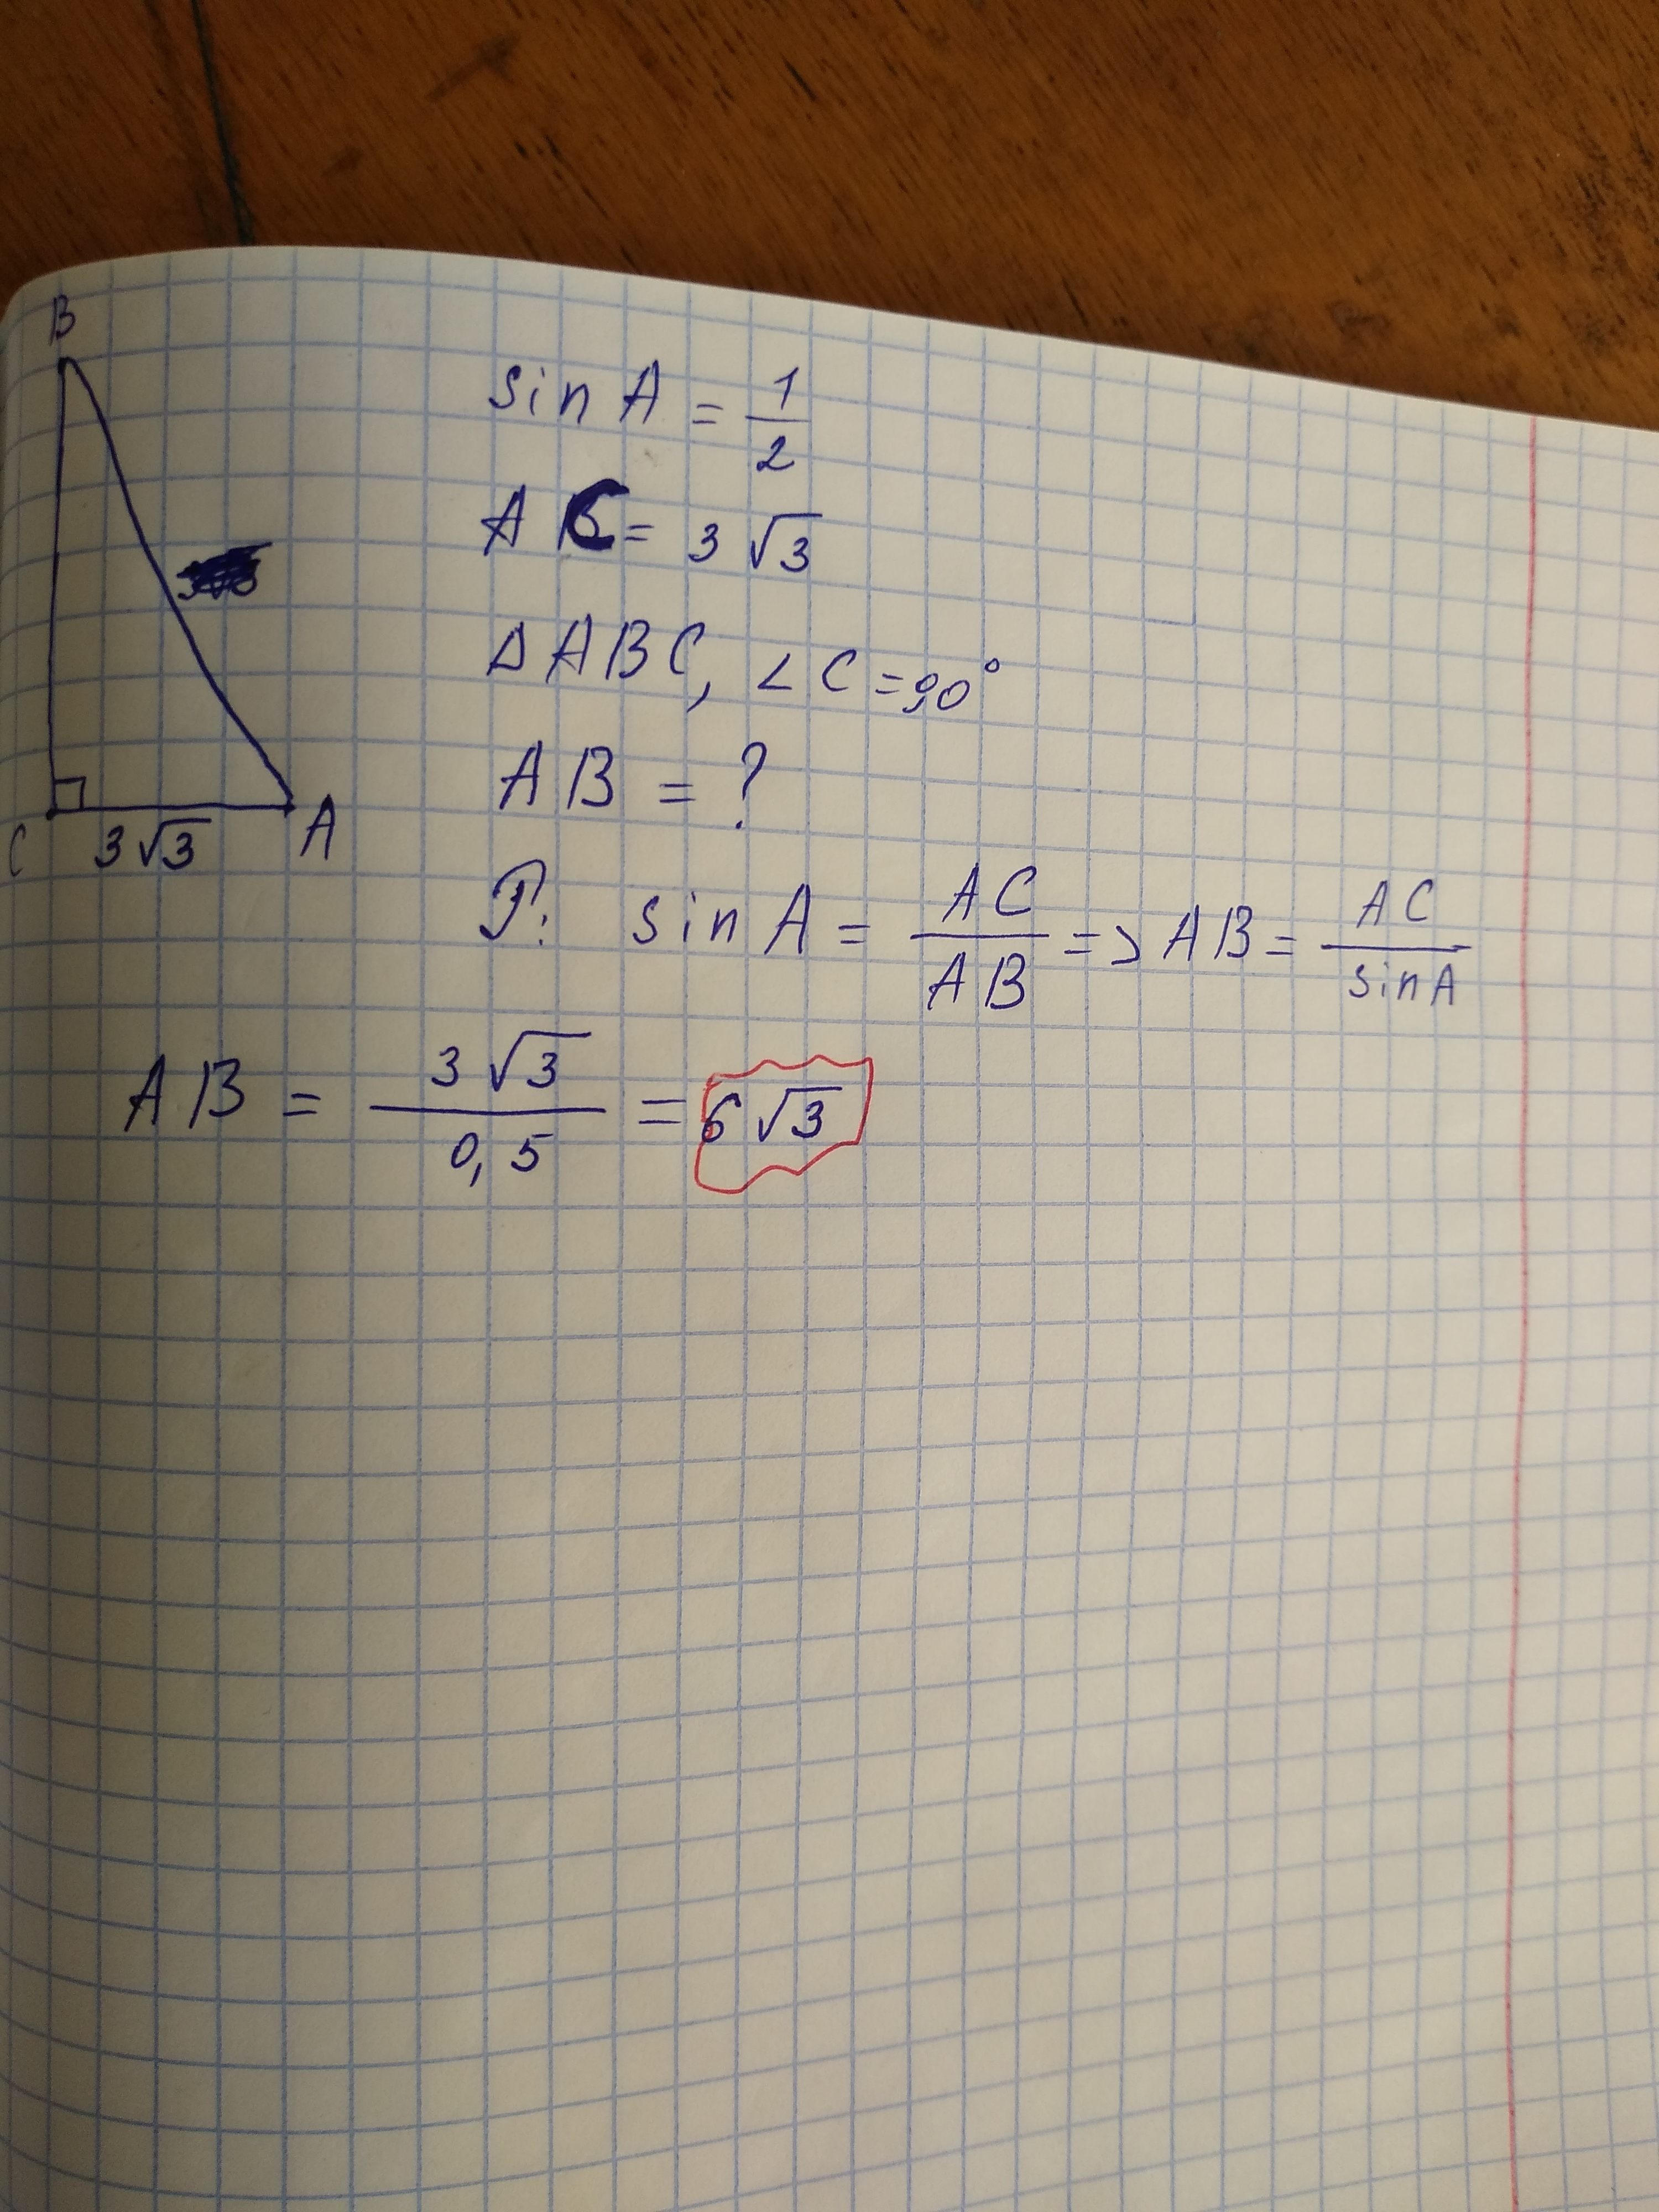 B
sin A = 1/2
AC = 3√3
△ABC, ∠C = 90°
AB = ?
C 3√3 A
P: sin A = AC/AB => AB = AC/sin A
AB = 3√3/0,5 = 6√3